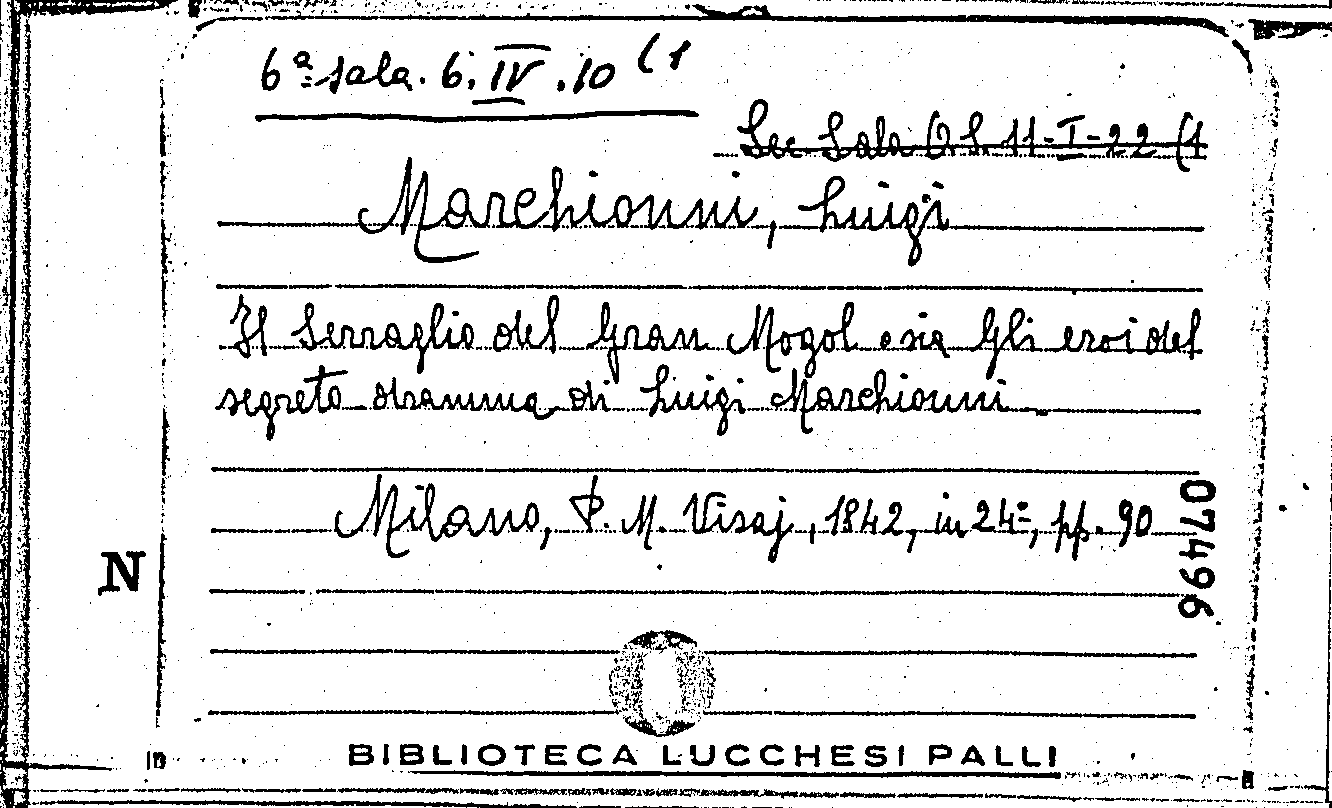 6ª sala. 6. IV. 10 (1
Sec Sala O.S. 11-I-22 (1
Marchionni, Luigi
Il Serraglio del Gran Mogol osia Gli eroi del
segreto dramma di Luigi Marchionni
Milano, P. M. Visaj, 1842, in 24º, pp. 90
07496
N
BIBLIOTECA LUCCHESI PALLI